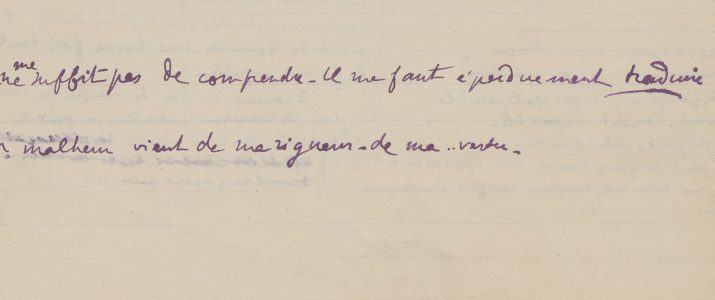 ne me suffit pas de comprendre - il me faut éperduement traduire
malheur vient de ma rigueur - de ma .. vertu -